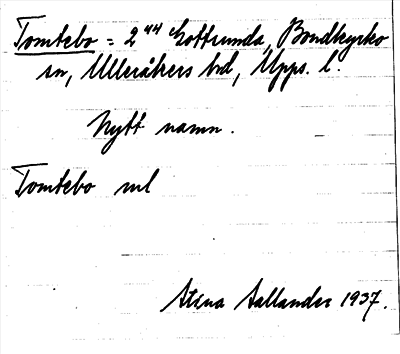 Tomtebo = 2⁴⁴ Gottsunda, Bondkyrko
sn, Ulleråkers hd, Upps. l.
Nytt namn.
Tomtebo ml
Stina Sallander 1937.